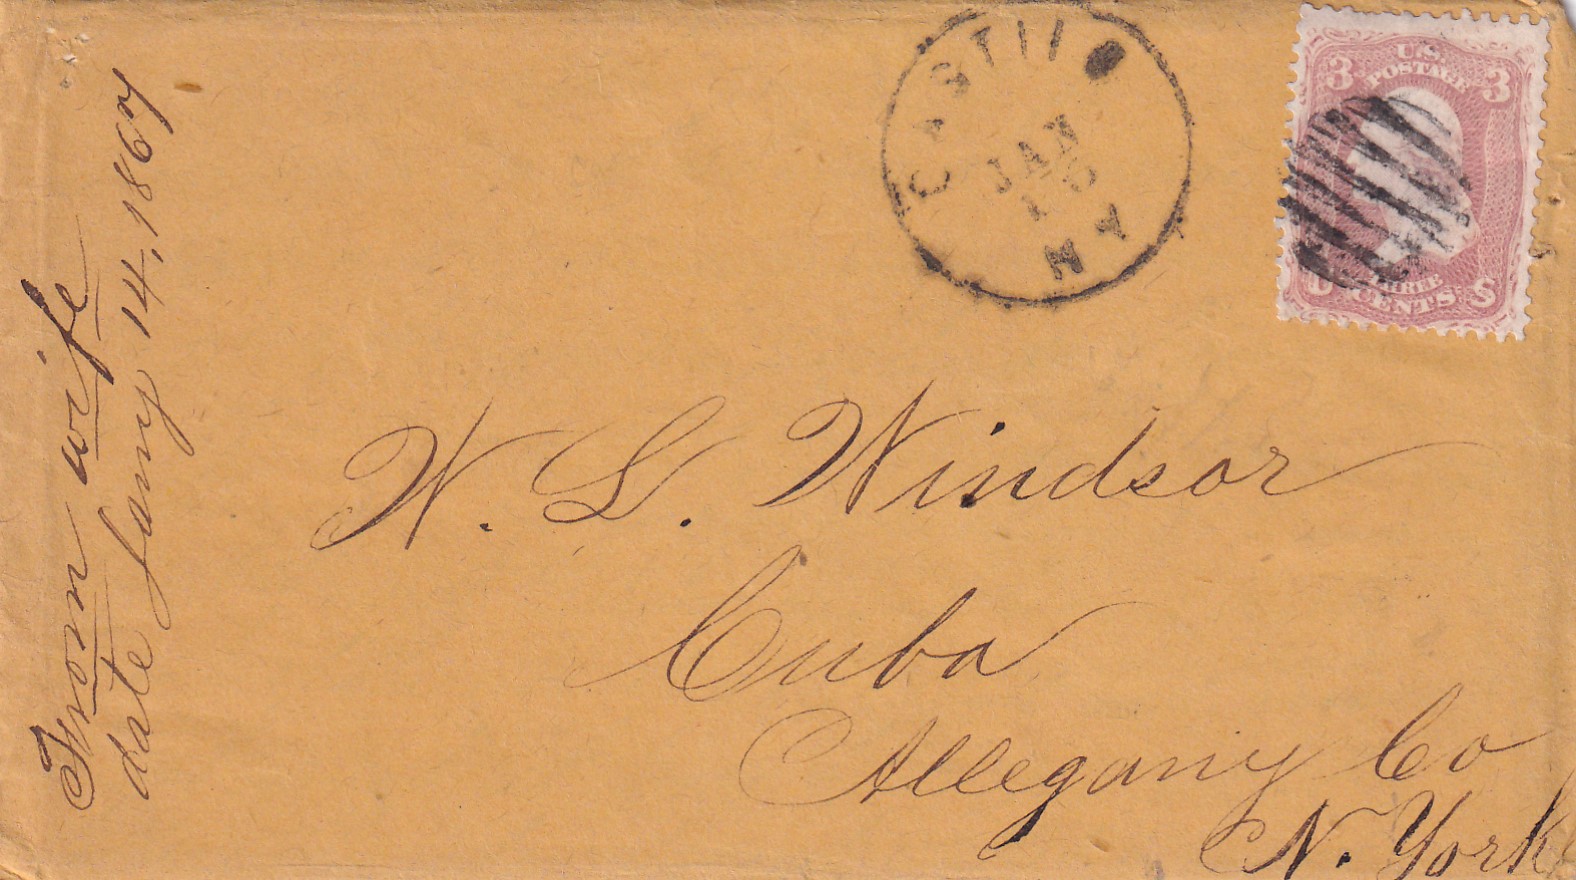 CASTILE
JAN
16
NY
U.S.
3 POSTAGE 3
THREE
U CENTS S
From wife
date Jany 14, 1867
W. L. Windsor
Cuba
Allegany Co
N. York